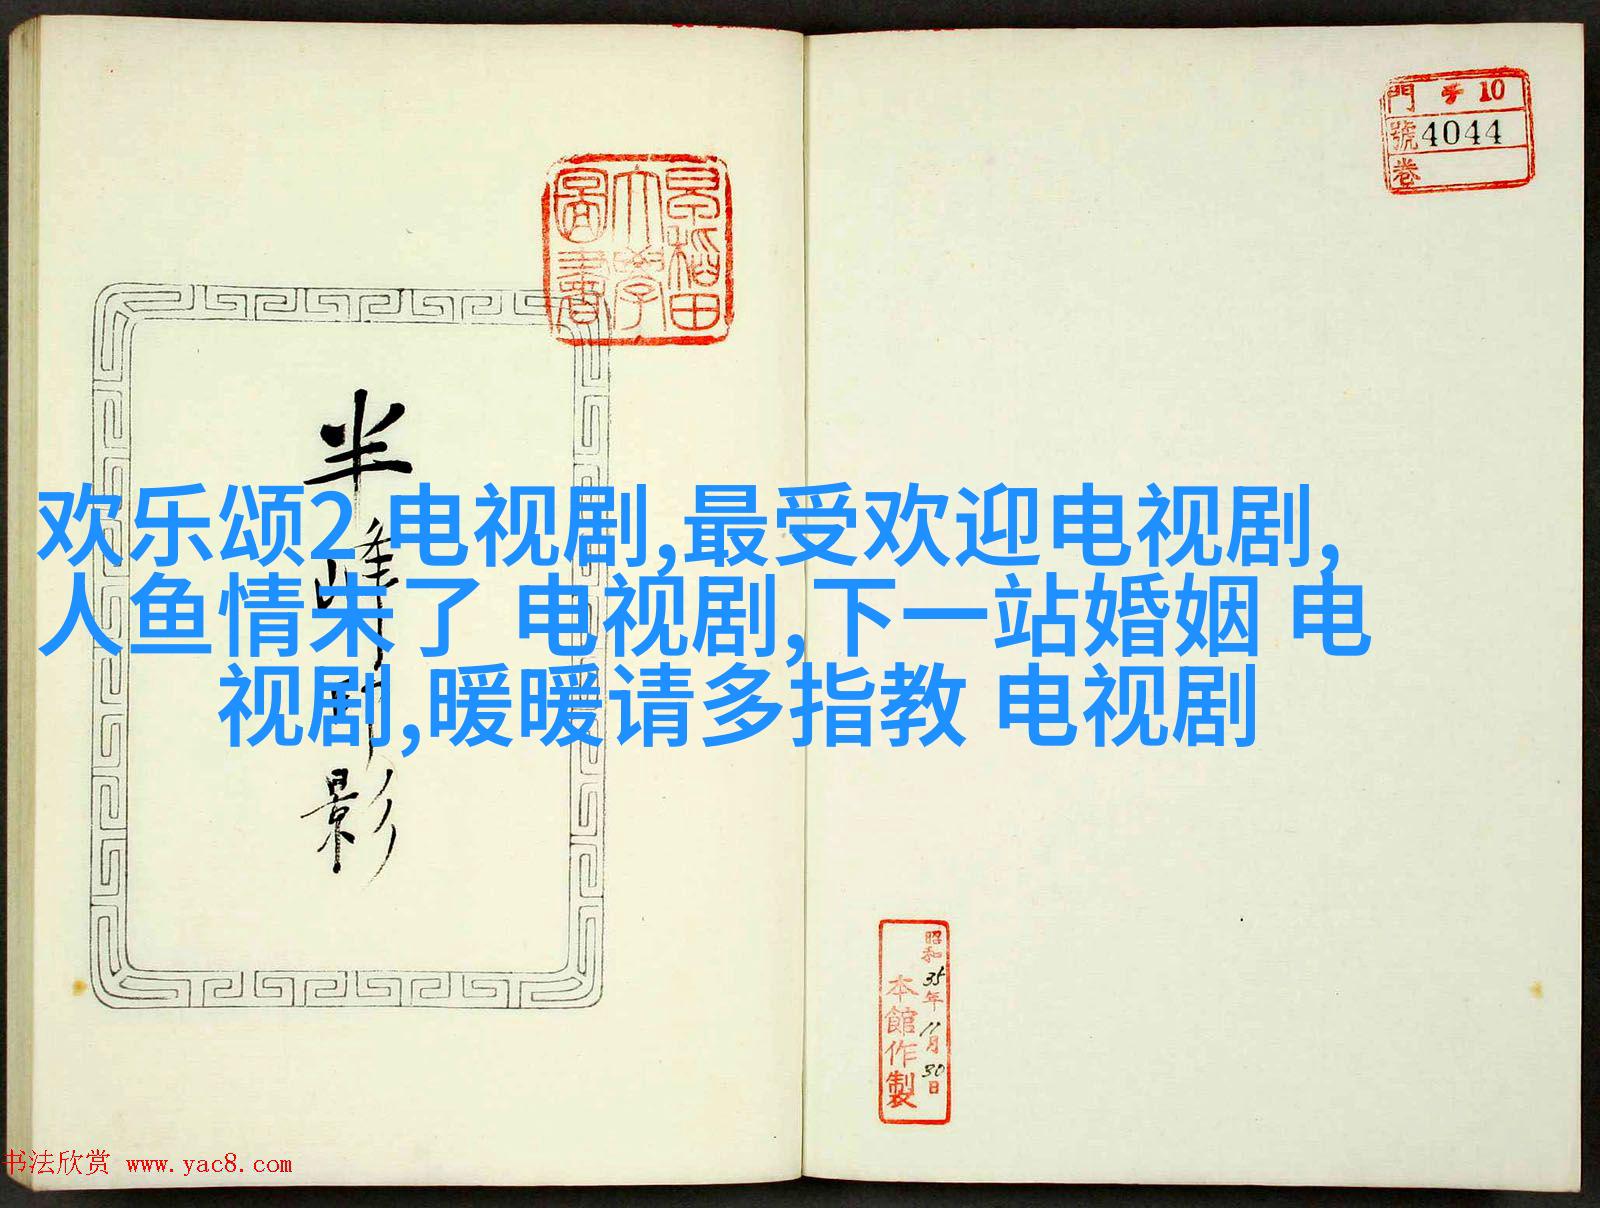 門 10
號 4044
卷
早稻田
大學
圖書
半
峰
影
欢乐颂2 电视剧,最受欢迎电视剧,
人鱼情未了 电视剧,下一站婚姻 电
视剧,暖暖请多指教 电视剧
昭和35年11月30日
本館作製
书法欣赏 www.yac8.com